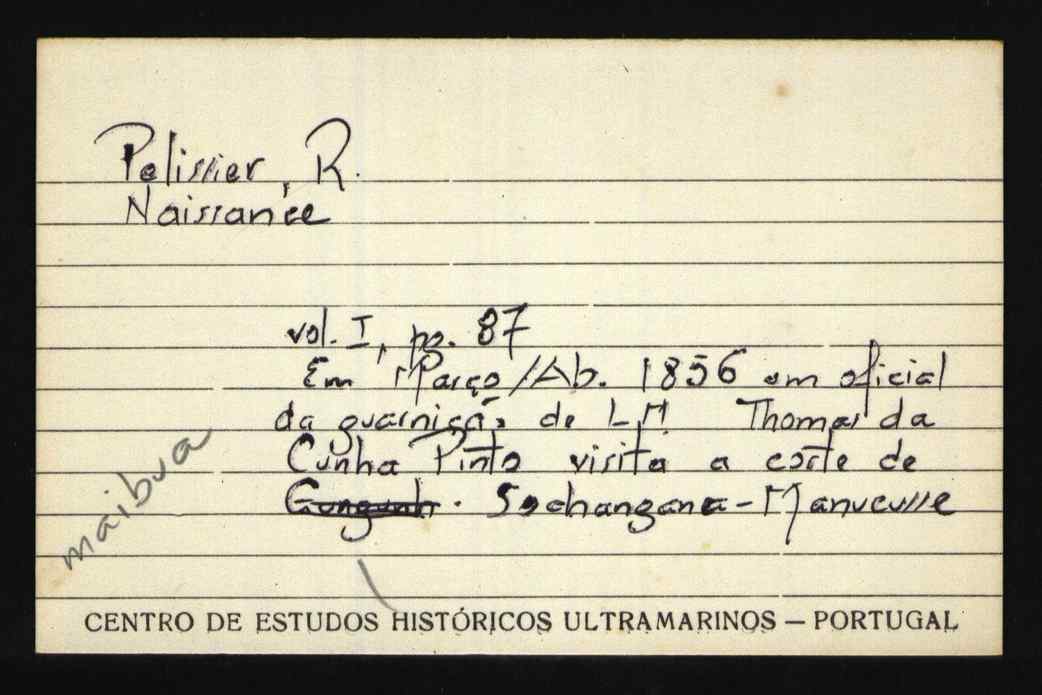 Pelissier, R.
Naissance
vol. I, pg. 87
Em Março/Ab. 1856 um oficial
da guarnição de L.M. Thomas da
Cunha Pinto visita a corte de
Gungunh. Sochangana-Manucusse
maibua
CENTRO DE ESTUDOS HISTÓRICOS ULTRAMARINOS — PORTUGAL